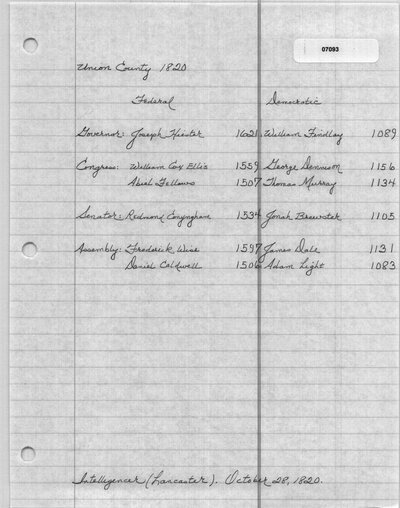 07093
Union County 1820
Federal Democratic
Governor: Joseph Hiester 1621 William Findlay 1089
Congress: William Cox Ellis 1559 George Dennison 1156
Abiel Fellows 1507 Thomas Murray 1134
Senator: Redmond Conyngham 1534 Jonah Brewster 1105
Assembly: Frederick Wise 1597 James Dale 1131
Daniel Caldwell 1506 Adam Light 1083
Intelligencer (Lancaster). October 28, 1820.